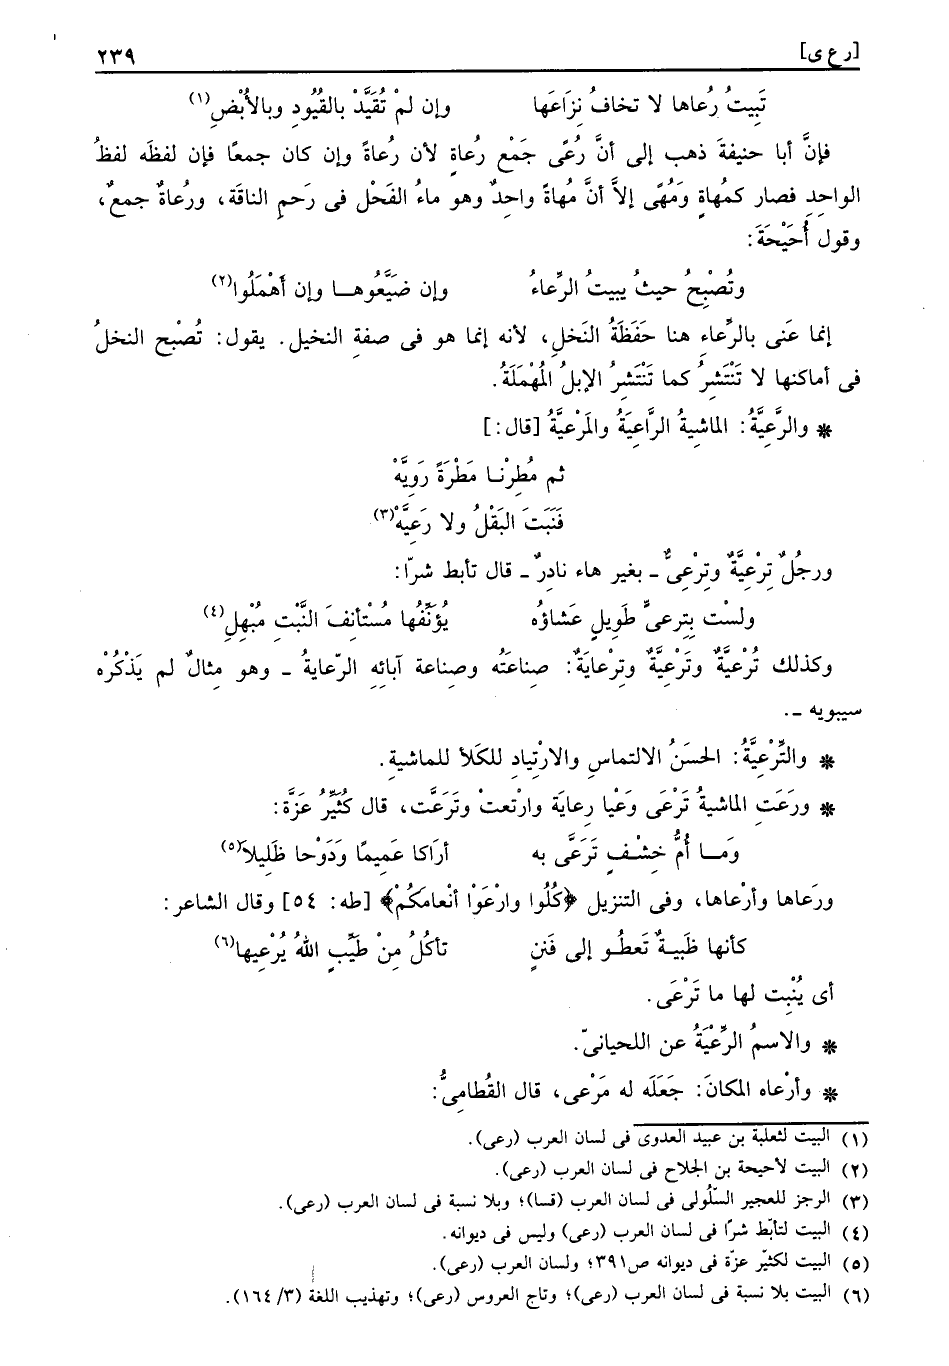 [ر ع ى] ٢٣٩
تَبِيتُ رُعاها لا تخافُ نِزَاعَها وإن لمْ تُقَيَّدْ بالقُيُودِ وبالأُبْضِ(١)
فإنَّ أبا حنيفةَ ذهب إلى أنَّ رُعًى جَمْع رُعاةٍ لأن رُعاةً وإن كان جمعًا فإن لفظَه لفظُ
الواحِدِ فصار كمُهاةٍ وَمُهًى إلاَّ أنَّ مُهاةً واحِدٌ وهو ماءُ الفَحْل فى رَحمِ الناقَة، ورُعاةٌ جمعٌ،
وقول أُحَيْحَةَ:
وتُصْبِحُ حيثُ يبيتُ الرِّعاءُ وإن ضَيَّعُوهــا وإن أَهْمَلُوا(٢)
إنما عَنى بالرِّعاءِ هنا حَفَظَةُ النَخلِ، لأنه إنما هو فى صفةِ النخيل. يقول: تُصْبح النخلُ
فى أماكنها لا تَنْتَشِرُ كما تَنْتَشِرُ الإبلُ المُهْمَلَةُ.
* والرَّعِيَّةُ: الماشيةُ الرَّاعِيَةُ والمَرْعِيَّةُ [قال:]
ثم مُطِرْنـا مَطْرَةً رَوِيَّهْ
فَنَبَتَ البَقْلُ ولا رَعِيَّهْ(٣)
ورجُلٌ تِرْعِيَّةٌ وتِرْعِىٌّ ـ بغير هاء نادرٌ ـ قال تأبط شرّا:
ولسْت بِتِرعىٍّ طَوِيلٍ عَشاؤُه يُؤنِّفُها مُسْتأنِفَ النَّبْتِ مُبْهِلِ(٤)
وكذلك تُرْعِيَّةٌ وتَرْعِيَّةٌ وتِرْعايَةٌ: صناعَتُه وصناعة آبائِه الرّعايةُ ـ وهو مثالٌ لم يَذْكُرْه
سيبويه ـ.
* والتِّرْعِيَّةُ: الحسَنُ الالتماسِ والارْتِيادِ للكَلأ للماشيةِ.
* ورَعَتِ الماشيةُ تَرْعَى وَعْيا رِعايَة وارْتعتْ وتَرَعَّت، قال كُثَيِّرُ عَزَّة:
وَمـا أمُّ خِشْـفٍ تَرَعَّى به أرَاكا عَمِيمًا ودَوْحا ظَلِيلاً(٥)
ورَعاها وأرْعاها، وفى التنزيل ﴿كُلُوا وارْعَوْا أنْعامَكُمْ﴾ [طه: ٥٤] وقال الشاعر:
كأنها ظَبيـةٌ تَعطُـو إلى فَننٍ تأكُلُ مِنْ طَيِّبٍ اللهُ يُرْعِيها(٦)
أى يُنْبِت لها ما تَرْعَى.
* والاسمُ الرِّعْيَةُ عن اللحيانىّ.
* وأرْعاه المكانَ: جَعَلَه له مَرْعى، قال القُطامِىُّ:
(١) البيت لثعلبة بن عبيد العدوى فى لسان العرب (رعى).
(٢) البيت لأحيحة بن الجلاح فى لسان العرب (رعى).
(٣) الرجز للعجير السّلُولى فى لسان العرب (قسا)؛ وبلا نسبة فى لسان العرب (رعى).
(٤) البيت لتأبّط شرًا فى لسان العرب (رعى) وليس فى ديوانه.
(٥) البيت لكثيّر عزّة فى ديوانه ص٣٩١؛ ولسان العرب (رعى).
(٦) البيت بلا نسبة فى لسان العرب (رعى)؛ وتاج العروس (رعى)؛ وتهذيب اللغة (٣/ ١٦٤).